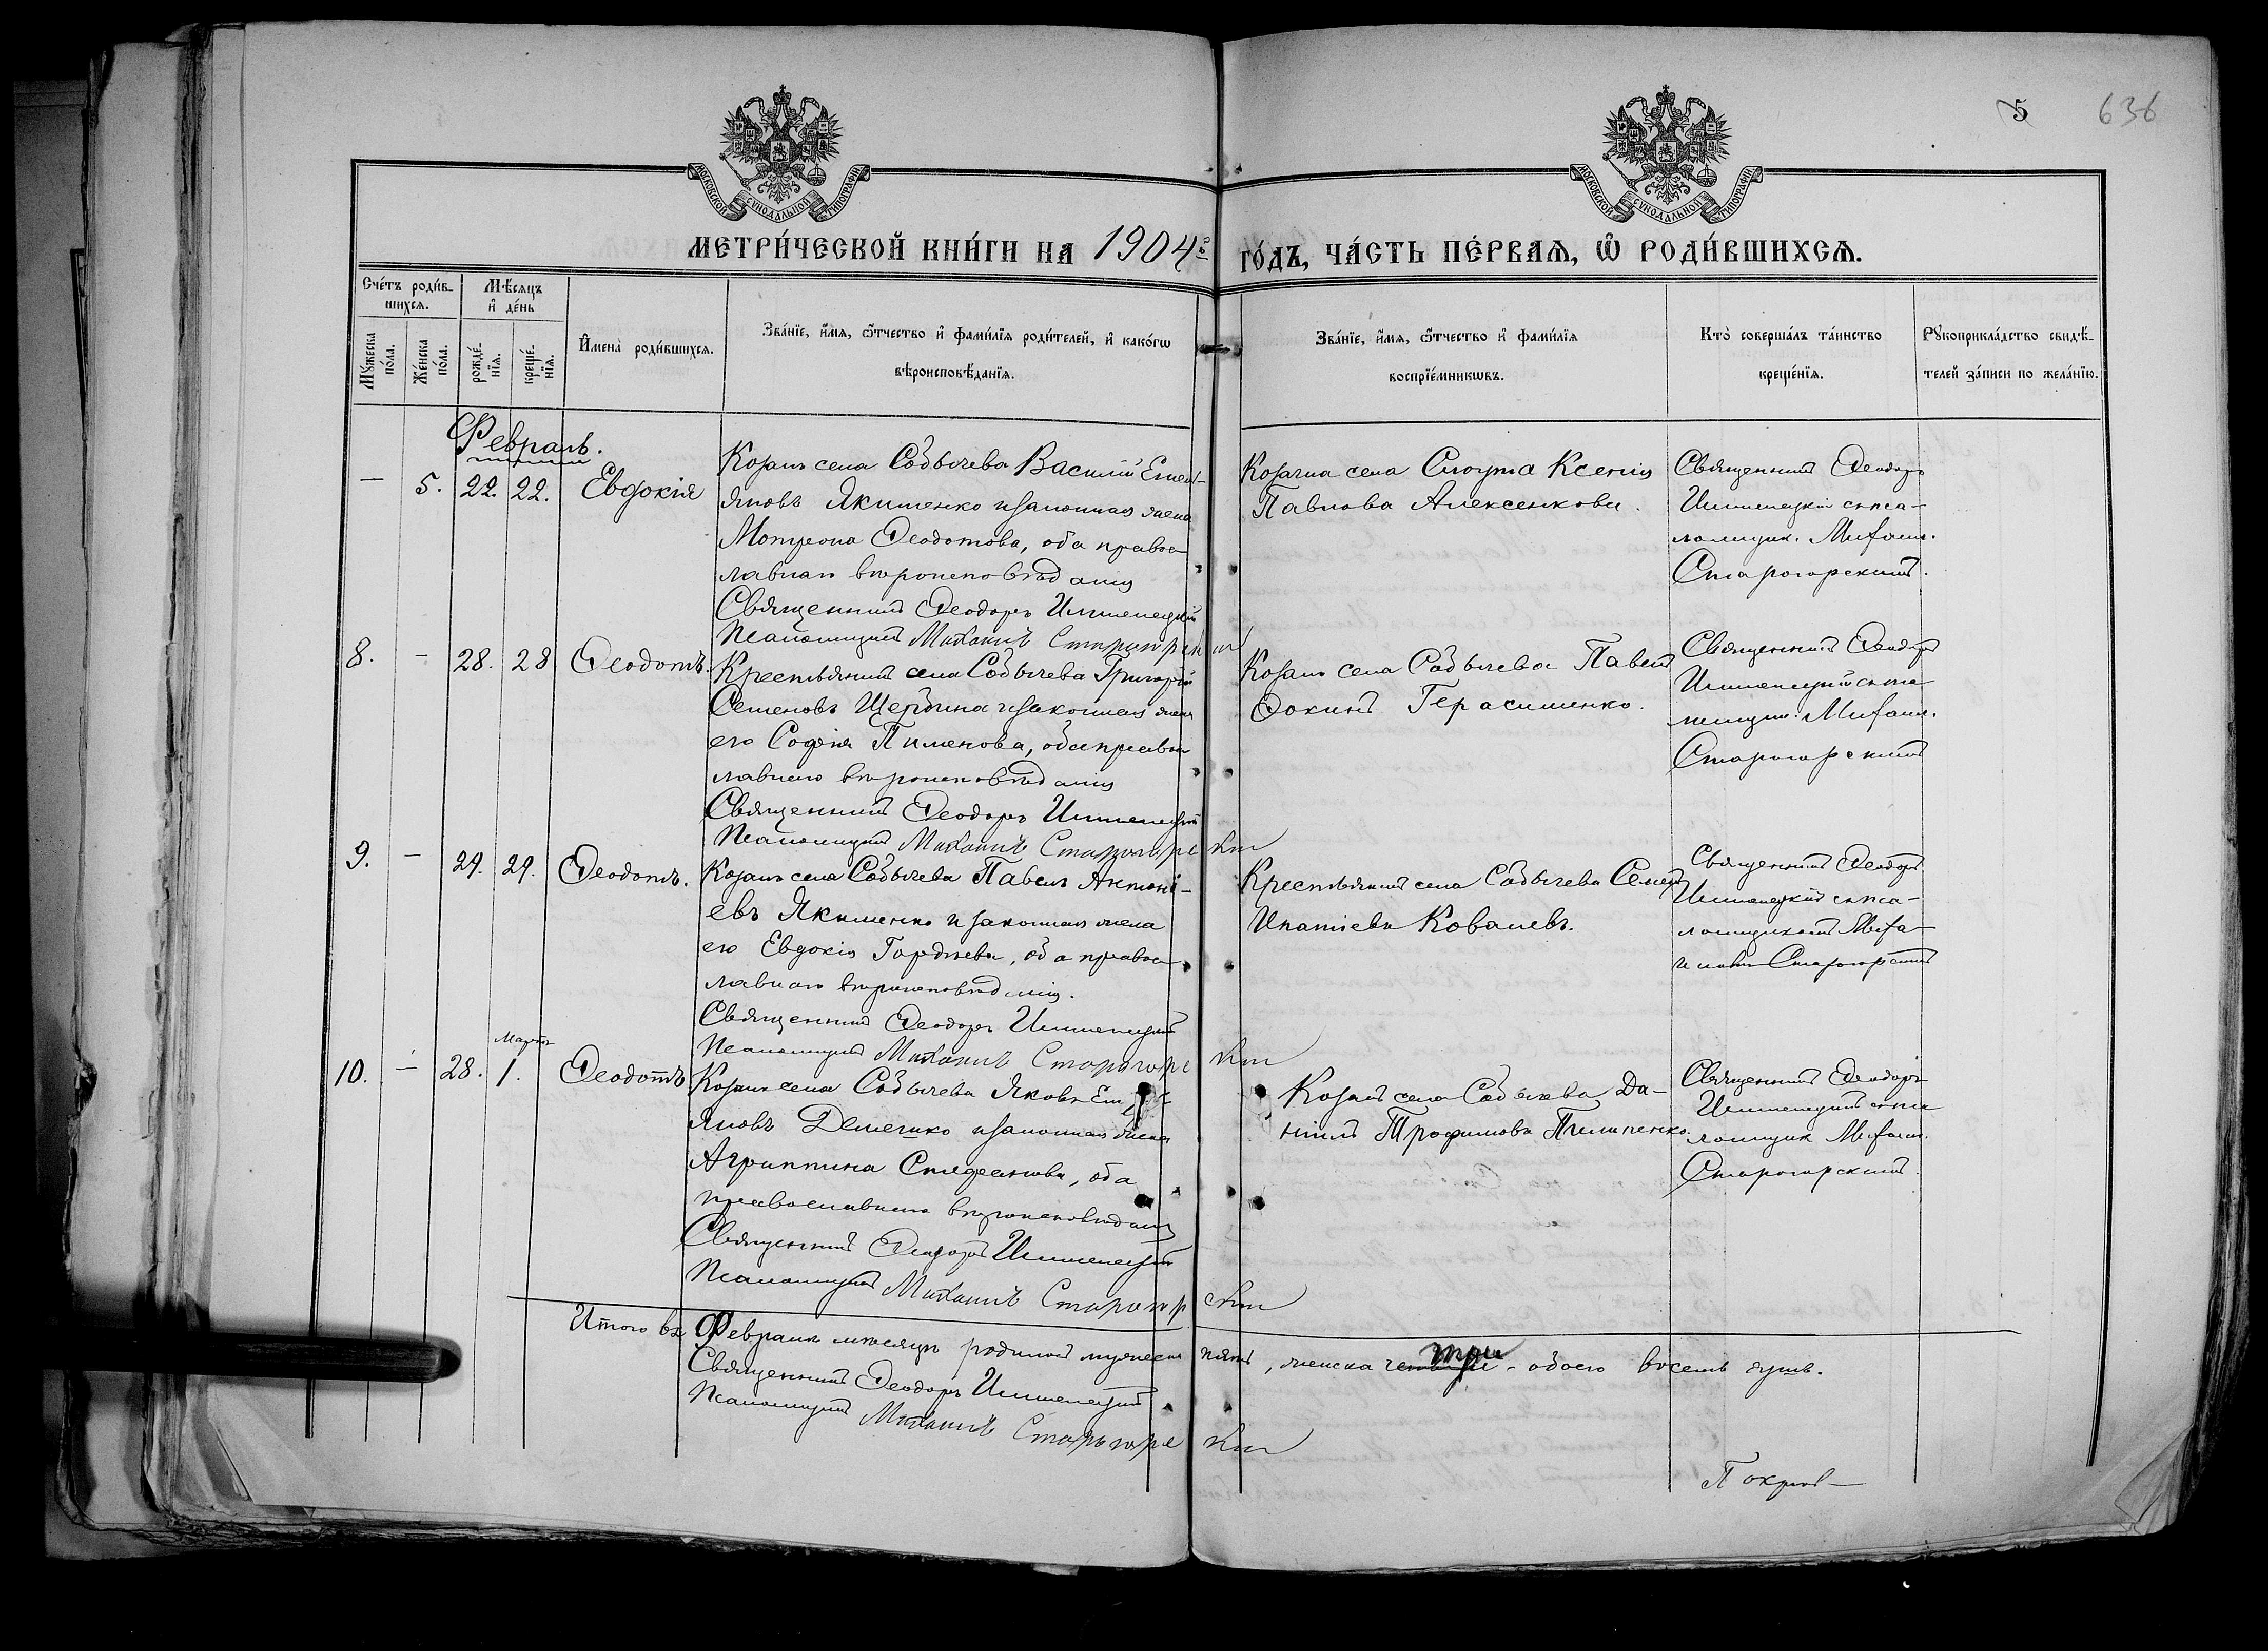 5 636
МОСКОВСКОЙ СѴНОДАЛЬНОЙ ТИПОГРАФІИ
МОСКОВСКОЙ СѴНОДАЛЬНОЙ ТИПОГРАФІИ
МЕТРИ́ЧЕСКОЙ КНИ́ГИ НА 1904й
ГО́ДЪ, ЧА́СТЬ ПЕ́РВАѦ, Ѡ РОДИ́ВШИХСѦ.
Сче́тъ роди́в-
шихсѧ.
Мꙋжеска по́ла.
Же́нска по́ла.
Мѣ́сѧцъ
и҆ де́нь
рожде́-
нїѧ.
креще́-
нїѧ.
И҆мена̀ роди́вшихсѧ.
Зва́нїе, и҆́мѧ, ѻ҆́тчество и҆ фами́лїѧ роди́телей, и҆ како́гѡ
вѣроисповѣ́данїѧ.
Зва́нїе, и҆́мѧ, ѻ҆́тчество и҆ фами́лїѧ
воспрїе́мникѡвъ.
Кто̀ соверша́лъ та́инство
креще́нїѧ.
Рꙋкоприкла́дство свидѣ́-
телей за́писи по жела́нїю.
Февраль.
— 5. 22. 22. Евдокія
Козакъ села Собычева Василій Емел-
яновъ Якименко и законная жена
Мотрона Ѳеодотова, оба правос-
лавнаго вѣроисповѣданія
Священникъ Ѳеодоръ
Псаломщикъ Михаилъ Старогорскій
Козачка села Слоута Ксенія
Павлова Алексенкова.
Священникъ Ѳеодоръ
съ пса-
ломщик. Михаил.
Старогорскимъ.
8. — 28. 28 Ѳеодотъ.
Крестьянинъ села Собычева Григорій
Семеновъ Щербина и законная жена
его Софія Пименова, оба правос
лавнаго вѣроисповѣданія
Священникъ Ѳеодоръ
Псаломщикъ Михаилъ Старогорскій
Козакъ села Собычева Павелъ
Фокинъ Герасименко.
Священникъ Ѳеодоръ
съ пса
ломщик. Михаил.
Старогорскимъ
9. — 29. 29. Ѳеодотъ.
Козакъ села Собычева Павелъ Антоні-
евъ Якименко и законная жена
его Евдокія Гордѣева, оба правос-
лавнаго вѣроисповѣданія.
Священникъ Ѳеодоръ
Псаломщикъ Михаилъ Старогорскій
Крестьянинъ села Собычева Семенъ
Ипатіевъ Ковалевъ.
Священникъ Ѳеодоръ
съ пса-
ломщикомъ Миха-
иломъ Старогорскимъ
Мартъ
10. — 28. 1. Ѳеодотъ
Козакъ села Собычева Яковъ Емел-
яновъ и законная жена
Агриппина Стефанова, оба
православнаго вѣроисповѣданія
Священникъ Ѳеодоръ
Псаломщикъ Михаилъ Старогорскій
Козакъ села Собычева Да-
ніилъ Трофимовъ Пилипенко.
Священникъ Ѳеодоръ
съ пса
ломщик Михаил.
Старогорскимъ.
Итого въ Февралѣ мѣсяцѣ родилось мужеска пять, женска четыре три - обоего восемь душъ.
Священникъ Ѳеодоръ
Псаломщикъ Михаилъ Старогорскій
Покров—